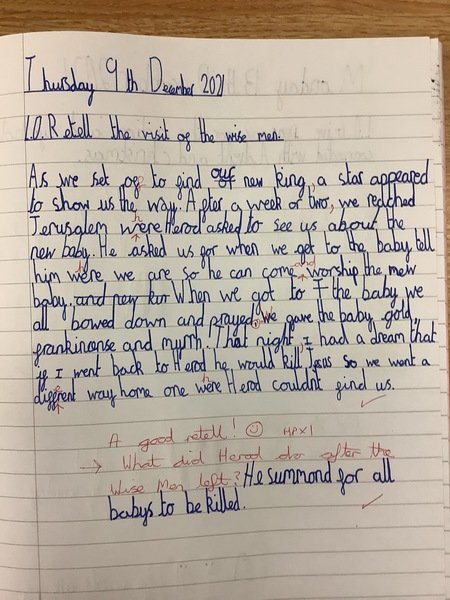 Thursday 9th December 2021
L.O. Retell the visit of the wise men.
As we set of to find our new king, a star appeared
to show us the way. After a week or two, we reached
Jerusalem where Herod asked to see us about the
new baby. He asked us for when we get to the baby tell
him where we are so he can come and worship the new
baby, and new When we got to the baby we
all bowed down and prayed. We gave the baby gold,
frankincense and myrrh. That night, I had a dream that
if I went back to Herod he would kill Jesus so we went a
different way home one where Herod couldnt find us.
A good retell! ☺ HPX1
→ What did Herod do after the
Wise Men left? He summond for all
babys to be killed.